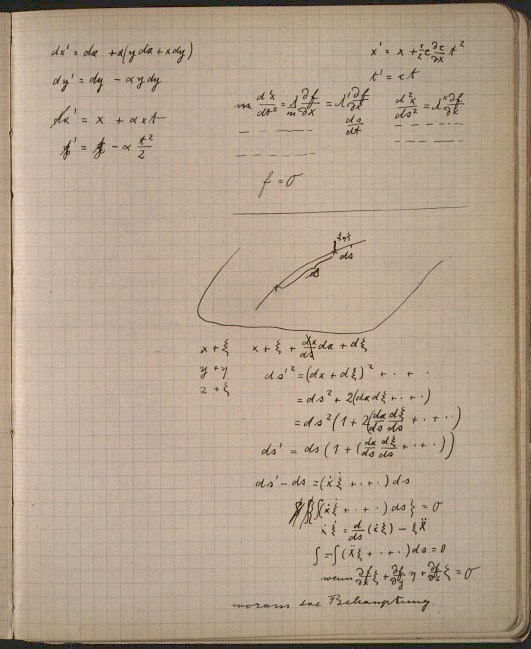 dx' = dx + α(y dx + x dy)
dy' = dy − α y dy
x' = x + α x t
t' = t − α t²/2
x' = x + ½ c ∂c/∂x t²
t' = ct
m d²x/dt² = λ ∂f/∂x = λ' ∂f/∂x
ds/dt
d²x/ds² = λ'' ∂f/∂x
f = 0
ξ η ζ
ds'
s
x + ξ x + ξ + dx/ds dx + dξ
y + η
z + ζ
ds'² = (dx + dξ)² + · · ·
= ds² + 2(dx dξ + · · ·)
= ds² (1 + 2(dx/ds dξ/ds + · · ·))
ds' = ds (1 + (dx/ds dξ/ds + · · ·))
ds' − ds = (ẋ ξ̇ + · · ·) ds
∫(ẋ ξ̇ + · · ·) ds} = 0
ẋ ξ̇ = d/ds (ẋ ξ) − ξ ẍ
∫ = −∫(ẍ ξ + · · ·) ds = 0
wenn ∂f/∂x ξ + ∂f/∂y η + ∂f/∂z ζ = 0
woraus die Behauptung.